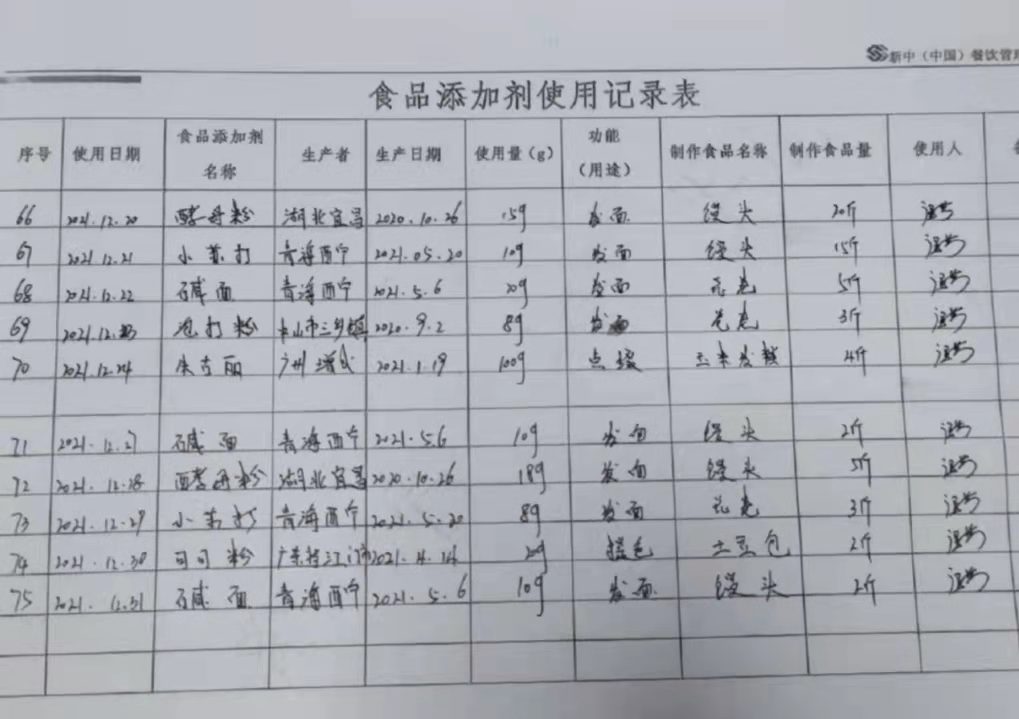 新中（中国）餐饮管
食品添加剂使用记录表
序号 使用日期 食品添加剂名称 生产者 生产日期 使用量（g） 功能（用途） 制作食品名称 制作食品量 使用人
66 2021.12.20 酵母粉 湖北宜昌 2020.10.26 15g 发面 馒头 20斤
67 2021.12.21 小苏打 青海西宁 2021.05.20 10g 发面 馒头 15斤
68 2021.12.22 碱面 青海西宁 2021.5.6 20g 发面 花卷 5斤
69 2021.12.23 泡打粉 中山市三乡镇 2020.9.2 8g 发面 花卷 3斤
70 2021.12.24 吉利丽 广州增城 2021.1.19 100g 点缀 玉米发糕 4斤
71 2021.12.27 碱面 青海西宁 2021.5.6 10g 发面 馒头 2斤
72 2021.12.28 酵母粉 湖北宜昌 2020.10.26 18g 发面 馒头 5斤
73 2021.12.29 小苏打 青海西宁 2021.5.20 8g 发面 花卷 3斤
74 2021.12.30 可可粉 广东 江门市 2021.4.26 20g 着色 土豆包 2斤
75 2021.12.31 碱面 青海西宁 2021.5.6 10g 发面 馒头 2斤